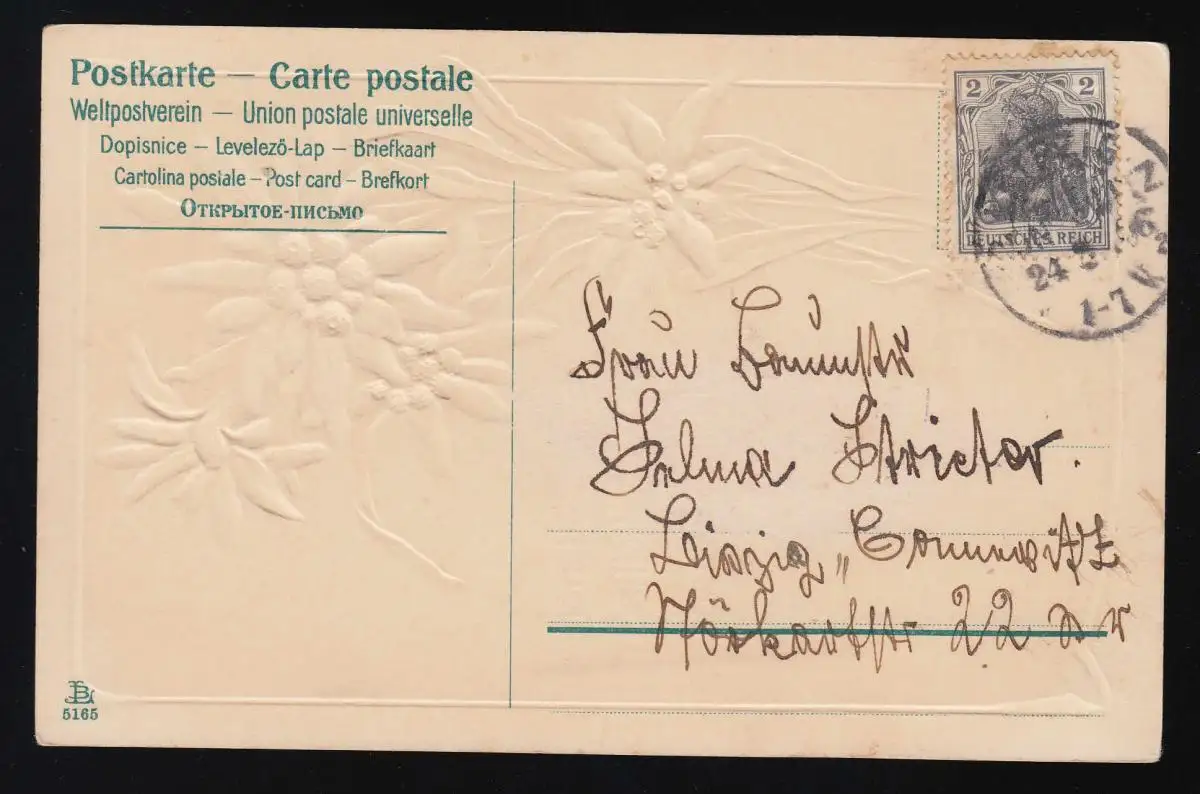 Postkarte — Carte postale
Weltpostverein — Union postale universelle
Dopisnice – Levelező-Lap – Briefkaart
Cartolina postale – Post card – Brefkort
Открытое-письмо
2 2
DEUTSCHES REICH
24
1-7 V
Frau
Selma
Leipzig „ Connewitz
22
5165